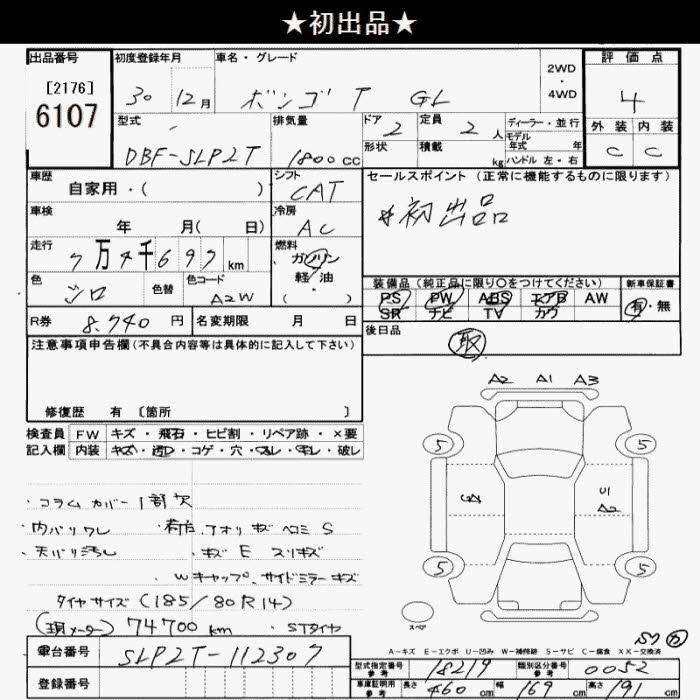 ★初出品★
出品番号 初度登録年月 車名・グレード 2WD・4WD 評価点
[2176] 6107 30 12月 ボンゴ T GL 4
型式 排気量 ドア 定員 ディーラー・並行 外装 内装
DBF-SLP2T 1800cc 2 2人 モデル年式 年 C C
形状 積載 kg ハンドル 左・右
車歴 シフト セールスポイント(正常に機能するものに限ります)
自家用・( ) CAT *初出品
車検 冷房
年 月( 日) AC
走行 燃料
7万4千697km ガソリン
軽・油
( )
色 色替 色コード 装備品(純正品に限り○をつけてください) 新車保証書
シロ A2W PS PW ABS エアB AW 有・無
SR ナビ TV カワ
R券 8.740円 名変期限 月 日 後日品
取
注意事項申告欄(不具合内容等は具体的に記入して下さい)
修復歴 有 〔箇所 〕
A2 A1 A3
検査員 FW キズ・飛石・ヒビ割・リペア跡・×要
記入欄 内装 コゲ・穴・破レ
5 5
U1
A2
5 5
・コラムカバー1部欠
・内バリワレ ・荷台、アオリ キズ ヘコミ S
・天バリ汚レ ・キズ E スリキズ
・Wキャップ、サイドミラーキズ
タイヤサイズ(185/80R14)
(現メーター) 74700km ・STタイヤ
スペア
A-キズ E-エクボ U-凹み W-補修跡 S-サビ C-腐食 XX-交換済
車台番号 SLP2T-112307
型式指定番号 参考 18219 類別区分番号 参考 0052
登録番号
車庫証明用 参考 長さ 460cm 幅 169cm 高さ 191cm